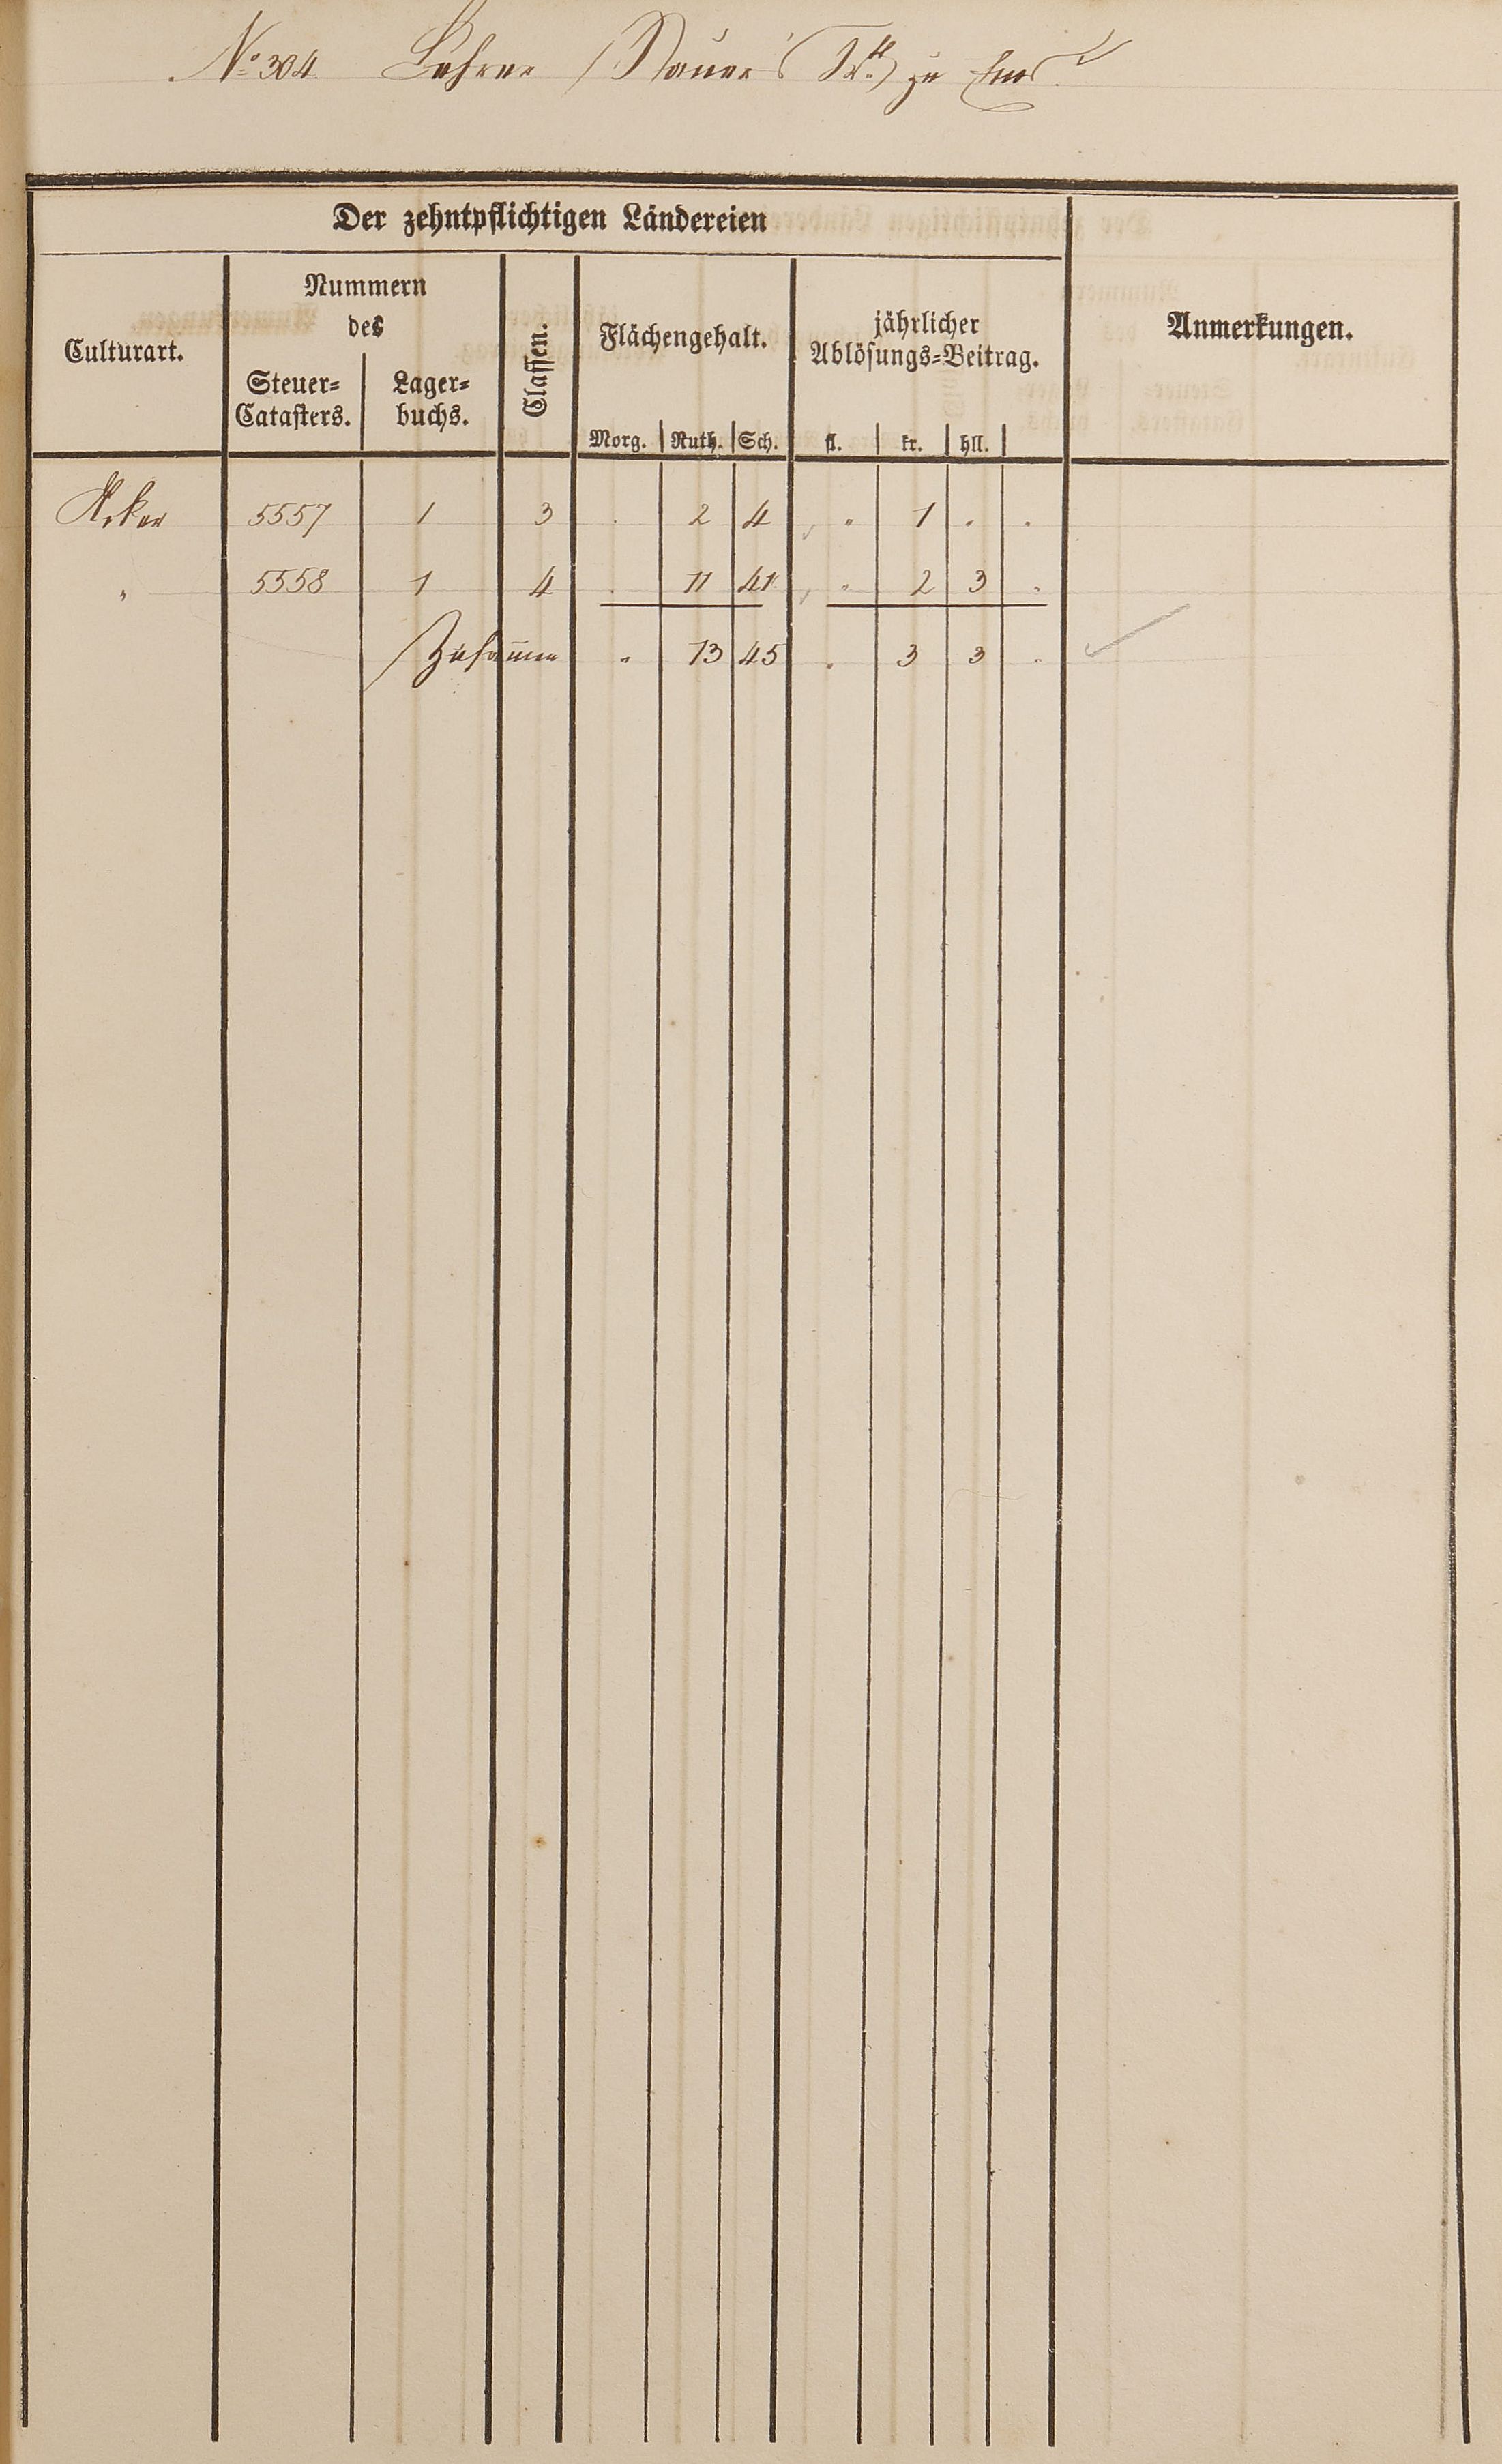 No 304 Lehrer zu Ems
Der zehntpflichtigen Ländereien
Culturart.
Nummern
des
Steuer-
Catasters.
Lager-
buchs.
Classen.
Flächengehalt.
Morg. Ruth. Sch.
jährlicher
Ablösungs-Beitrag.
fl. kr. hll.
Anmerkungen.
Acker 5557 1 3 . 2 4 " 1 . .
" 5558 1 4 . 11 41 " 2 3 .
Zusammen " 13 45 . 3 3 "